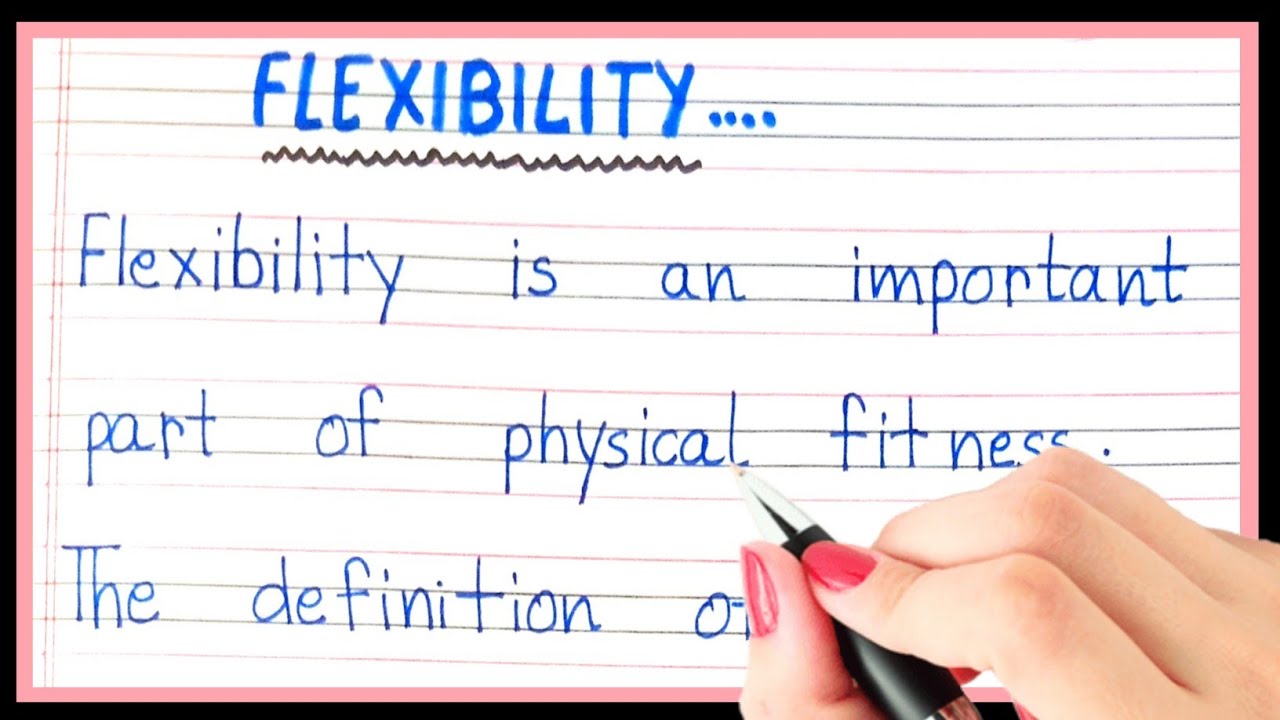 FLEXIBILITY....
Flexibility is an important
part of physical fitness.
The definition of